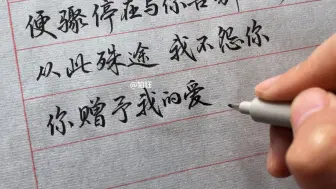 便骤停在与你告别
从此殊途 我不怨你
你赠予我的爱